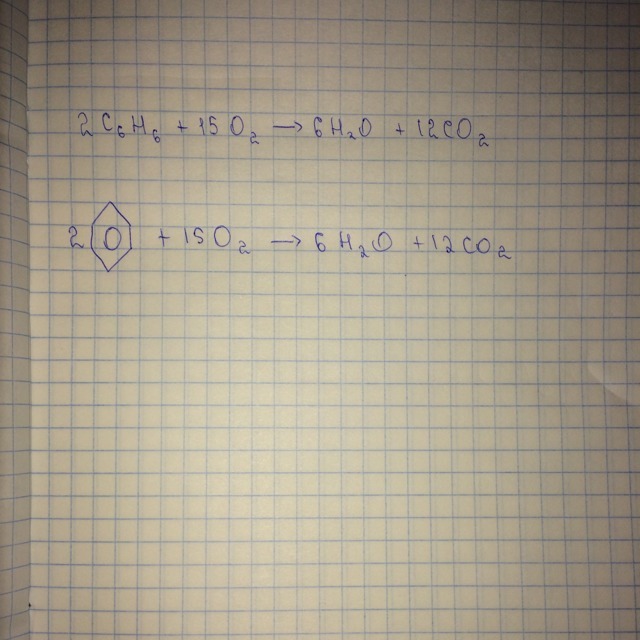 2C₆H₆ + 15O₂ → 6H₂O + 12CO₂
2 + 15O₂ → 6H₂O + 12CO₂